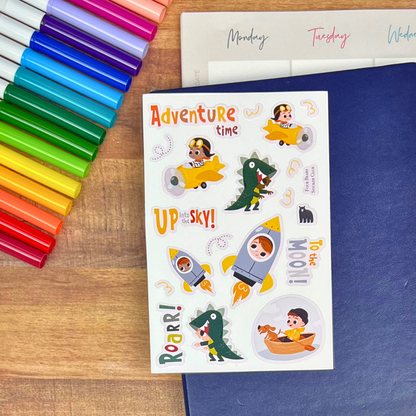 Monday Tuesday Wedne
ADVENTURE
time
FOUR BEARS
STICKER CLUB
UP into the SKY!
To the
MOON!
ROARR!